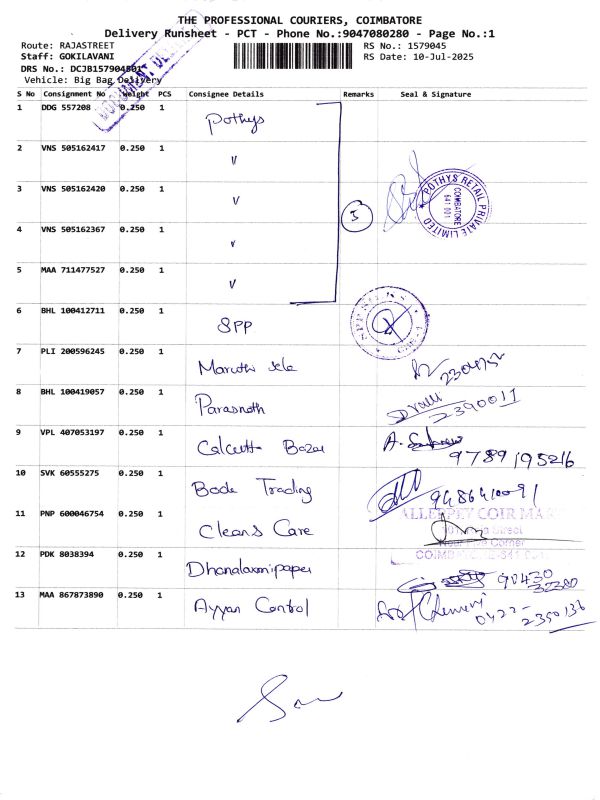 THE PROFESSIONAL COURIERS, COIMBATORE
Delivery Runsheet - PCT - Phone No.:9047080280 - Page No.:1
Route: RAJASTREET RS No.: 1579045
Staff: GOKILAVANI RS Date: 10-Jul-2025
DRS No.: DCJB157904501
Vehicle: Big Bag Delivery
S No Consignment No Weight PCS Consignee Details Remarks Seal & Signature
1 DDG 557208 0.250 1 Pothys
2 VNS 505162417 0.250 1 v
3 VNS 505162420 0.250 1 v
POTHYS RETAIL PRIVATE LIMITED
COIMBATORE
641 001
4 VNS 505162367 0.250 1 v 5
5 MAA 711477527 0.250 1 v
6 BHL 100412711 0.250 1 SPP
7 PLI 200596245 0.250 1 Maruthi
8 BHL 100419057 0.250 1 Parasnath 2390011
9 VPL 407053197 0.250 1 Calcutta Bazar 9789195216
10 SVK 60555275 0.250 1 Bode Trading
11 PNP 600046754 0.250 1 Cleans Care
ALLEPPEY COIR MA
12 PDK 8038394 0.250 1 Dhanalaxmipaper 90430
13 MAA 867873890 0.250 1 Ayyan Control 0422-
2350136